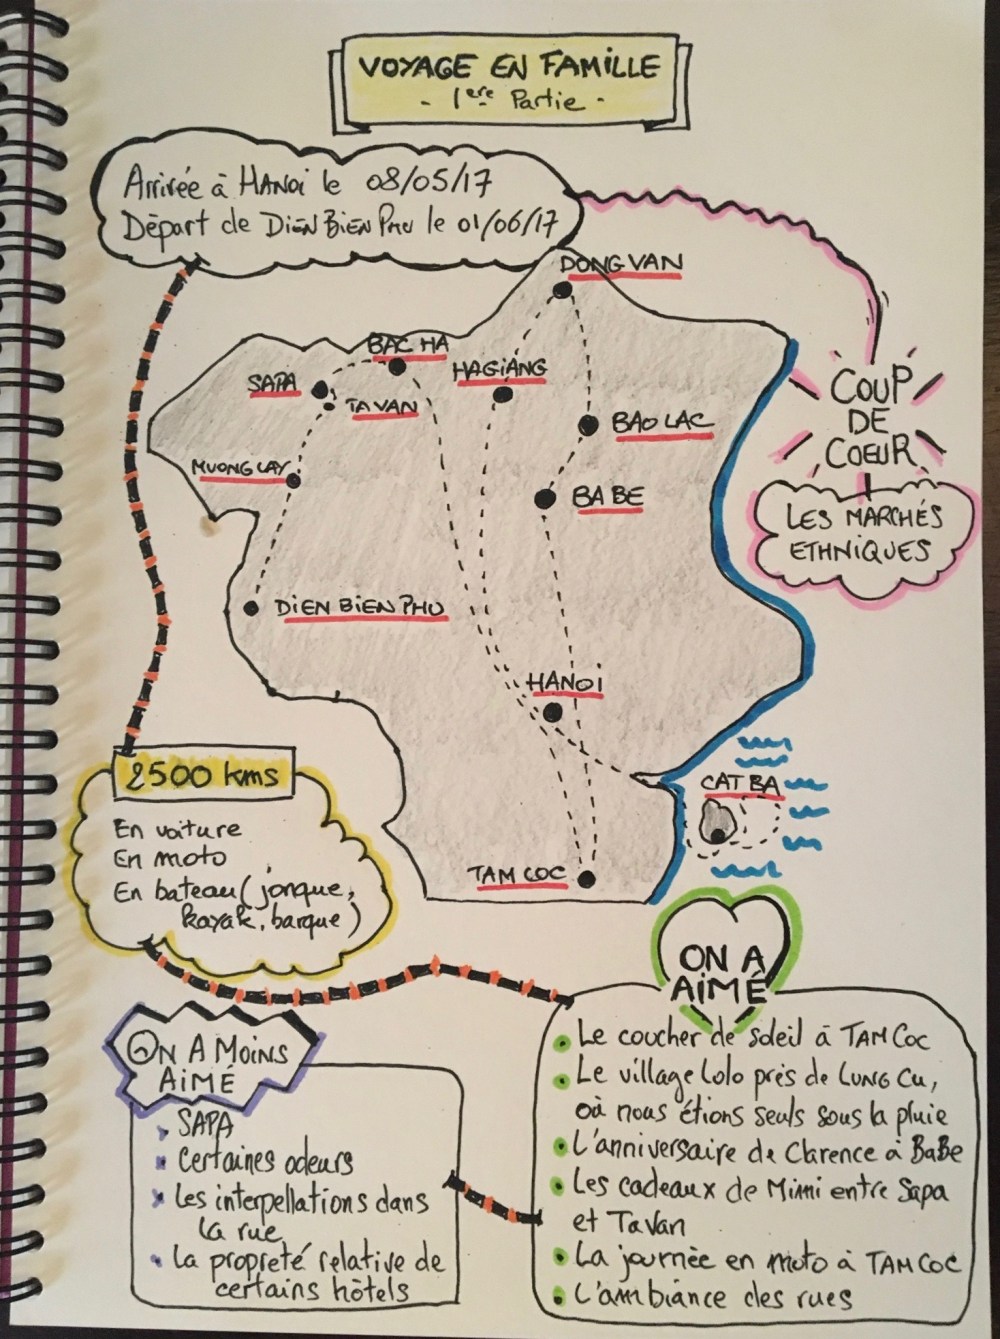 VOYAGE EN FAMILLE
- 1ère Partie -
Arrivée à HANOI le 08/05/17
Départ de DIEN BIEN PHU le 01/06/17
DONG VAN
BAC HA
HAGIANG
SAPA
TAVAN
BAO LAC
MUONG LAY
BA BE
DIEN BIEN PHU
HANOI
CAT BA
TAM COC
COUP
DE
COEUR
LES MARCHÉS
ETHNIQUES
2500 kms
En voiture
En moto
En bateau (jonque,
kayak, barque)
ON A
AIMÉ
Le coucher de soleil à TAM COC
Le village Lolo près de LUNG CU,
où nous étions seuls sous la pluie
L'anniversaire de Clarence à BaBe
Les cadeaux de Mimi entre Sapa
et TaVan
La journée en moto à TAM COC
L'ambiance des rues
ON A MOINS
AIMÉ
SAPA
Certaines odeurs
Les interpellations dans
la rue
La propreté relative de
certains hôtels